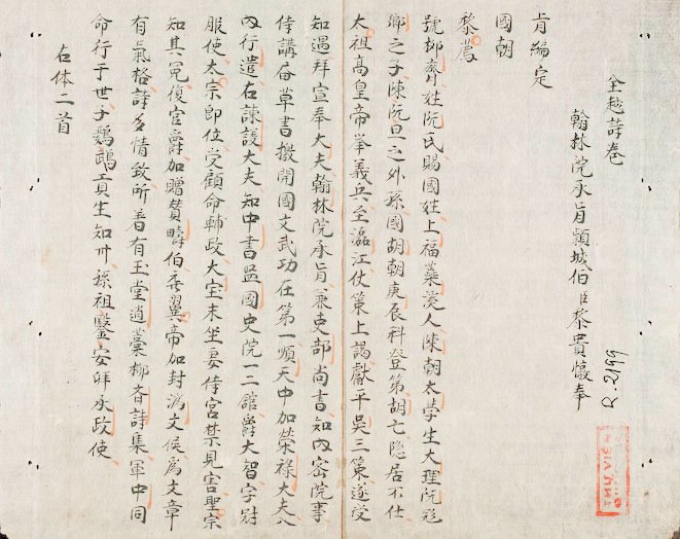 全越詩卷
翰林院承旨頴城伯臣黎貴惇奉
旨編定
國朝
黎廌
號抑齋姓阮氏賜國姓上福蘂溪人陳朝太學生大理阮飛
卿之子陳阮旦之外孫國胡朝庚辰科登第胡亡隐居不仕
太祖高皇帝举義兵至瀘江仗策上謁獻平吳三策遂受
知遇拜宣奉大夫翰林院承旨兼吏部尚書知內密院事
侍講居草書檄開國文武功在第一順天中加榮祿大夫入
內行遣右諫議大夫知中書监國史院一二舘爵大智字冠
服使太宗即位受顧命輔政大宝末坐妾侍宮禁見害聖宗
知其冤復官爵加贈賛疇伯 翼帝加封済文侯爲文章
有氣格詩多情致所著有玉堂遺藁抑齋詩集軍中
命行于世子鸚鵡 生知州孫祖鑒安 承政使
右体二首
R.2199